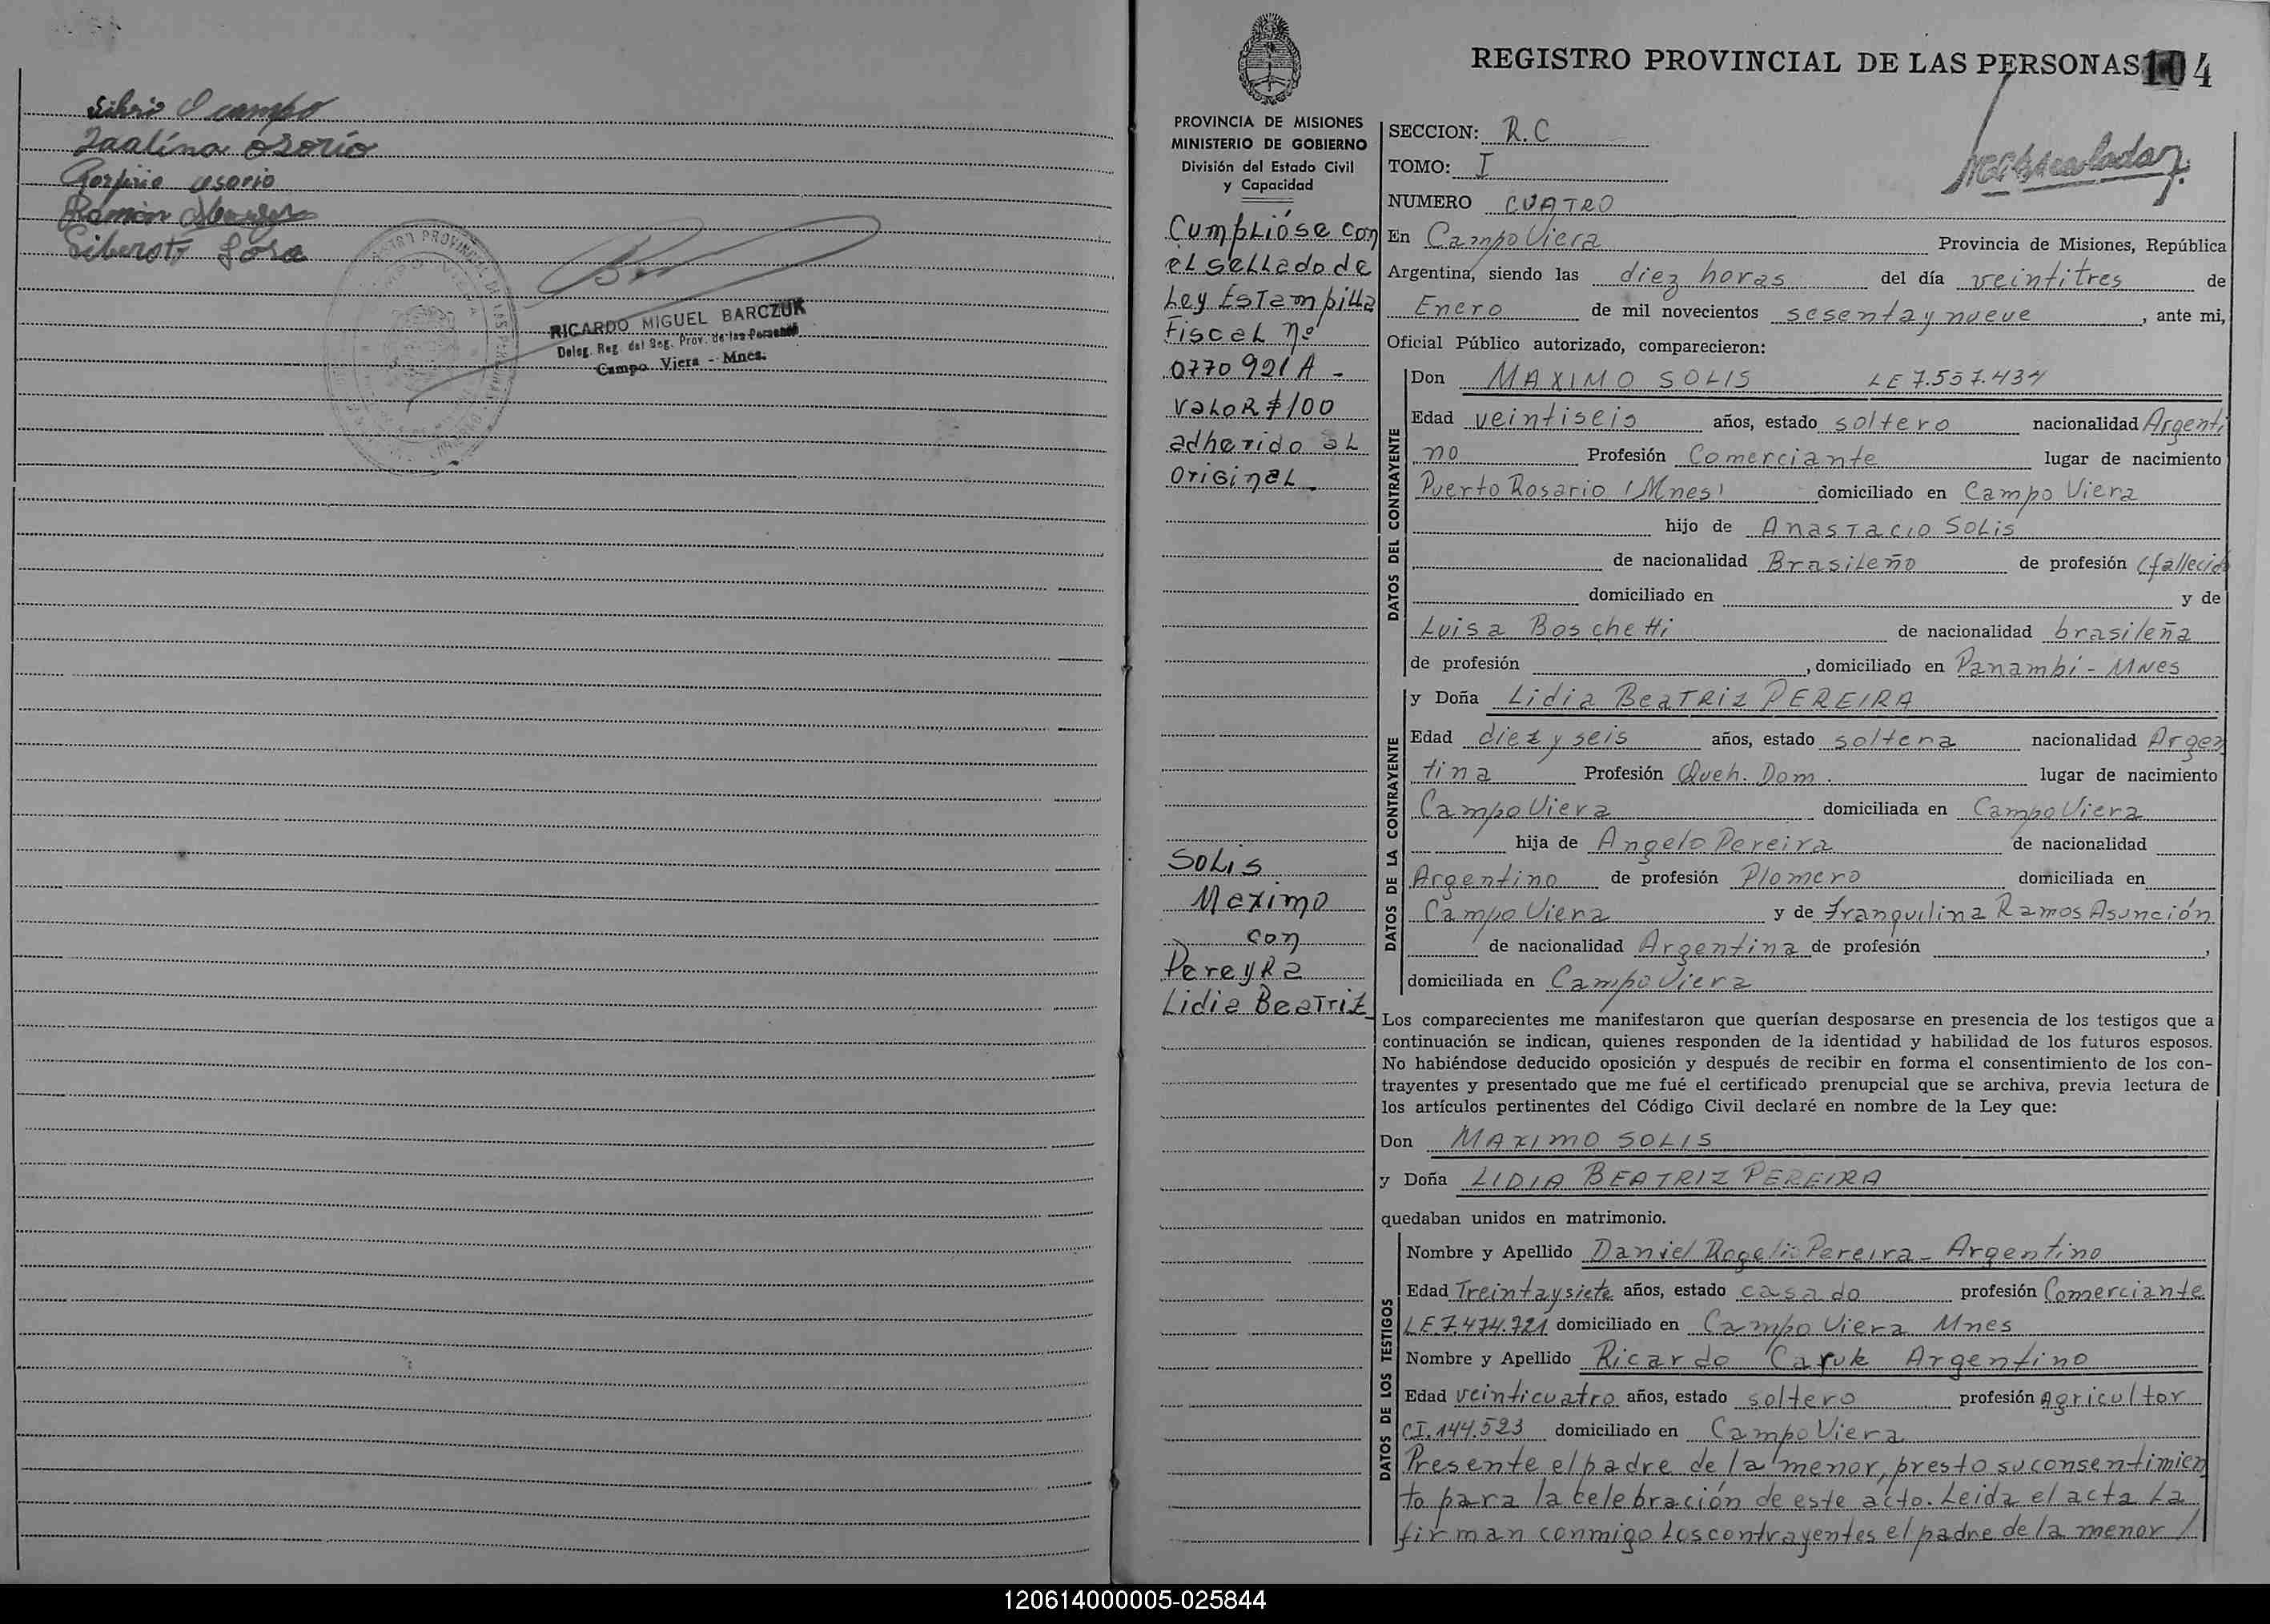 Ocampo
Osorio
Osorio
Ramón
Sosa
RICARDO MIGUEL BARCZUK
Deleg. Reg. del Reg. Prov. de las Personas
Campo Viera - Mnes.
REGISTRO PROVINCIAL DE LAS PERSONAS 104
PROVINCIA DE MISIONES
MINISTERIO DE GOBIERNO
División del Estado Civil
y Capacidad
Cumplióse con
el sellado de
Ley Estampilla
Fiscal nº
0770921A -
Valor $100
adherido al
original
Solis
Maximo
con
Pereyra
Lidia Beatriz
SECCION: R.C
TOMO: I
NUMERO CUATRO
En Campo Viera Provincia de Misiones, República
Argentina, siendo las diez horas del día veintitres de
Enero de mil novecientos sesenta y nueve, ante mi,
Oficial Público autorizado, comparecieron:
DATOS DEL CONTRAYENTE
Don MAXIMO SOLIS LE 7.557.434
Edad veintiseis años, estado soltero nacionalidad Argenti
no Profesión Comerciante lugar de nacimiento
Puerto Rosario (Mnes) domiciliado en Campo Viera
hijo de Anastacio Solis
de nacionalidad Brasileño de profesión (fallecido
domiciliado en y de
Luisa Boschetti de nacionalidad brasileña
de profesión , domiciliado en Panambi - Mnes
DATOS DE LA CONTRAYENTE
y Doña Lidia Beatriz PEREIRA
Edad diez y seis años, estado soltera nacionalidad Argen
tina Profesión Queh. Dom. lugar de nacimiento
Campo Viera domiciliada en Campo Viera
hija de Angelo Pereira de nacionalidad
Argentino de profesión Plomero domiciliada en
Campo Viera y de Tranquilina Ramos Asunción
de nacionalidad Argentina de profesión ,
domiciliada en Campo Viera
Los comparecientes me manifestaron que querían desposarse en presencia de los testigos que a
continuación se indican, quienes responden de la identidad y habilidad de los futuros esposos.
No habiéndose deducido oposición y después de recibir en forma el consentimiento de los con-
trayentes y presentado que me fué el certificado prenupcial que se archiva, previa lectura de
los artículos pertinentes del Código Civil declaré en nombre de la Ley que:
Don MAXIMO SOLIS
y Doña LIDIA BEATRIZ PEREIRA
quedaban unidos en matrimonio.
DATOS DE LOS TESTIGOS
Nombre y Apellido Daniel Rogelio Pereira - Argentino
Edad Treinta y siete años, estado casado profesión Comerciante
LE.7.474.721 domiciliado en Campo Viera Mnes
Nombre y Apellido Ricardo Argentino
Edad veinticuatro años, estado soltero profesión Agricultor
CI.144.523 domiciliado en Campo Viera
Presente el padre de la menor, presto su consentimien
to para la celebración de este acto. Leida el acta La
firman conmigo Los contrayentes el padre de la menor /
120614000005-025844